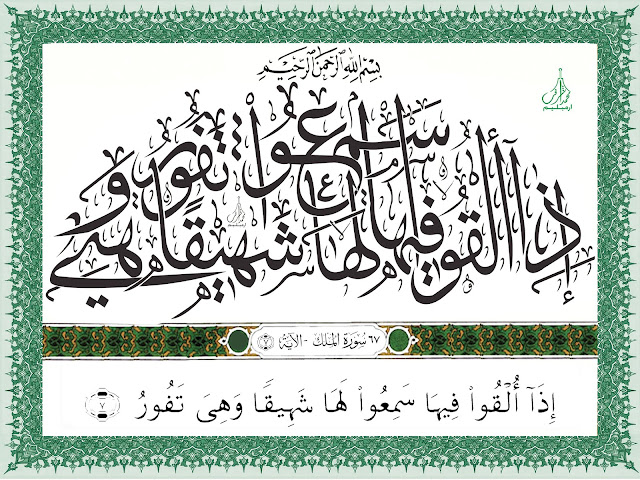 بِسْمِ اللهِ الرَّحْمَنِ الرَّحِيمِ
إِذَا أُلْقُوا فِيهَا سَمِعُوا لَهَا شَهِيقًا وَهِيَ تَفُورُ
٦٧ سُورَةُ المُلْك - الآيَة ٧
إِذَآ أُلْقُوا۟ فِيهَا سَمِعُوا۟ لَهَا شَهِيقًا وَهِىَ تَفُورُ ٧